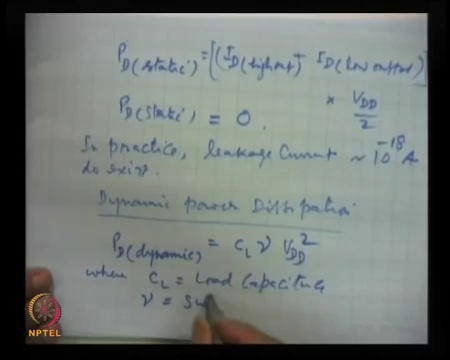 P_D(static) = [(I_D(high out) + I_D(low output)]
× V_DD/2
P_D(static) = 0.
In practice, leakage current ~ 10^-18 A
do exist.
Dynamic power Dissipation
P_D(dynamic) = C_L ν V_DD^2
where C_L = Load Capacitance
ν = Sw
NPTEL